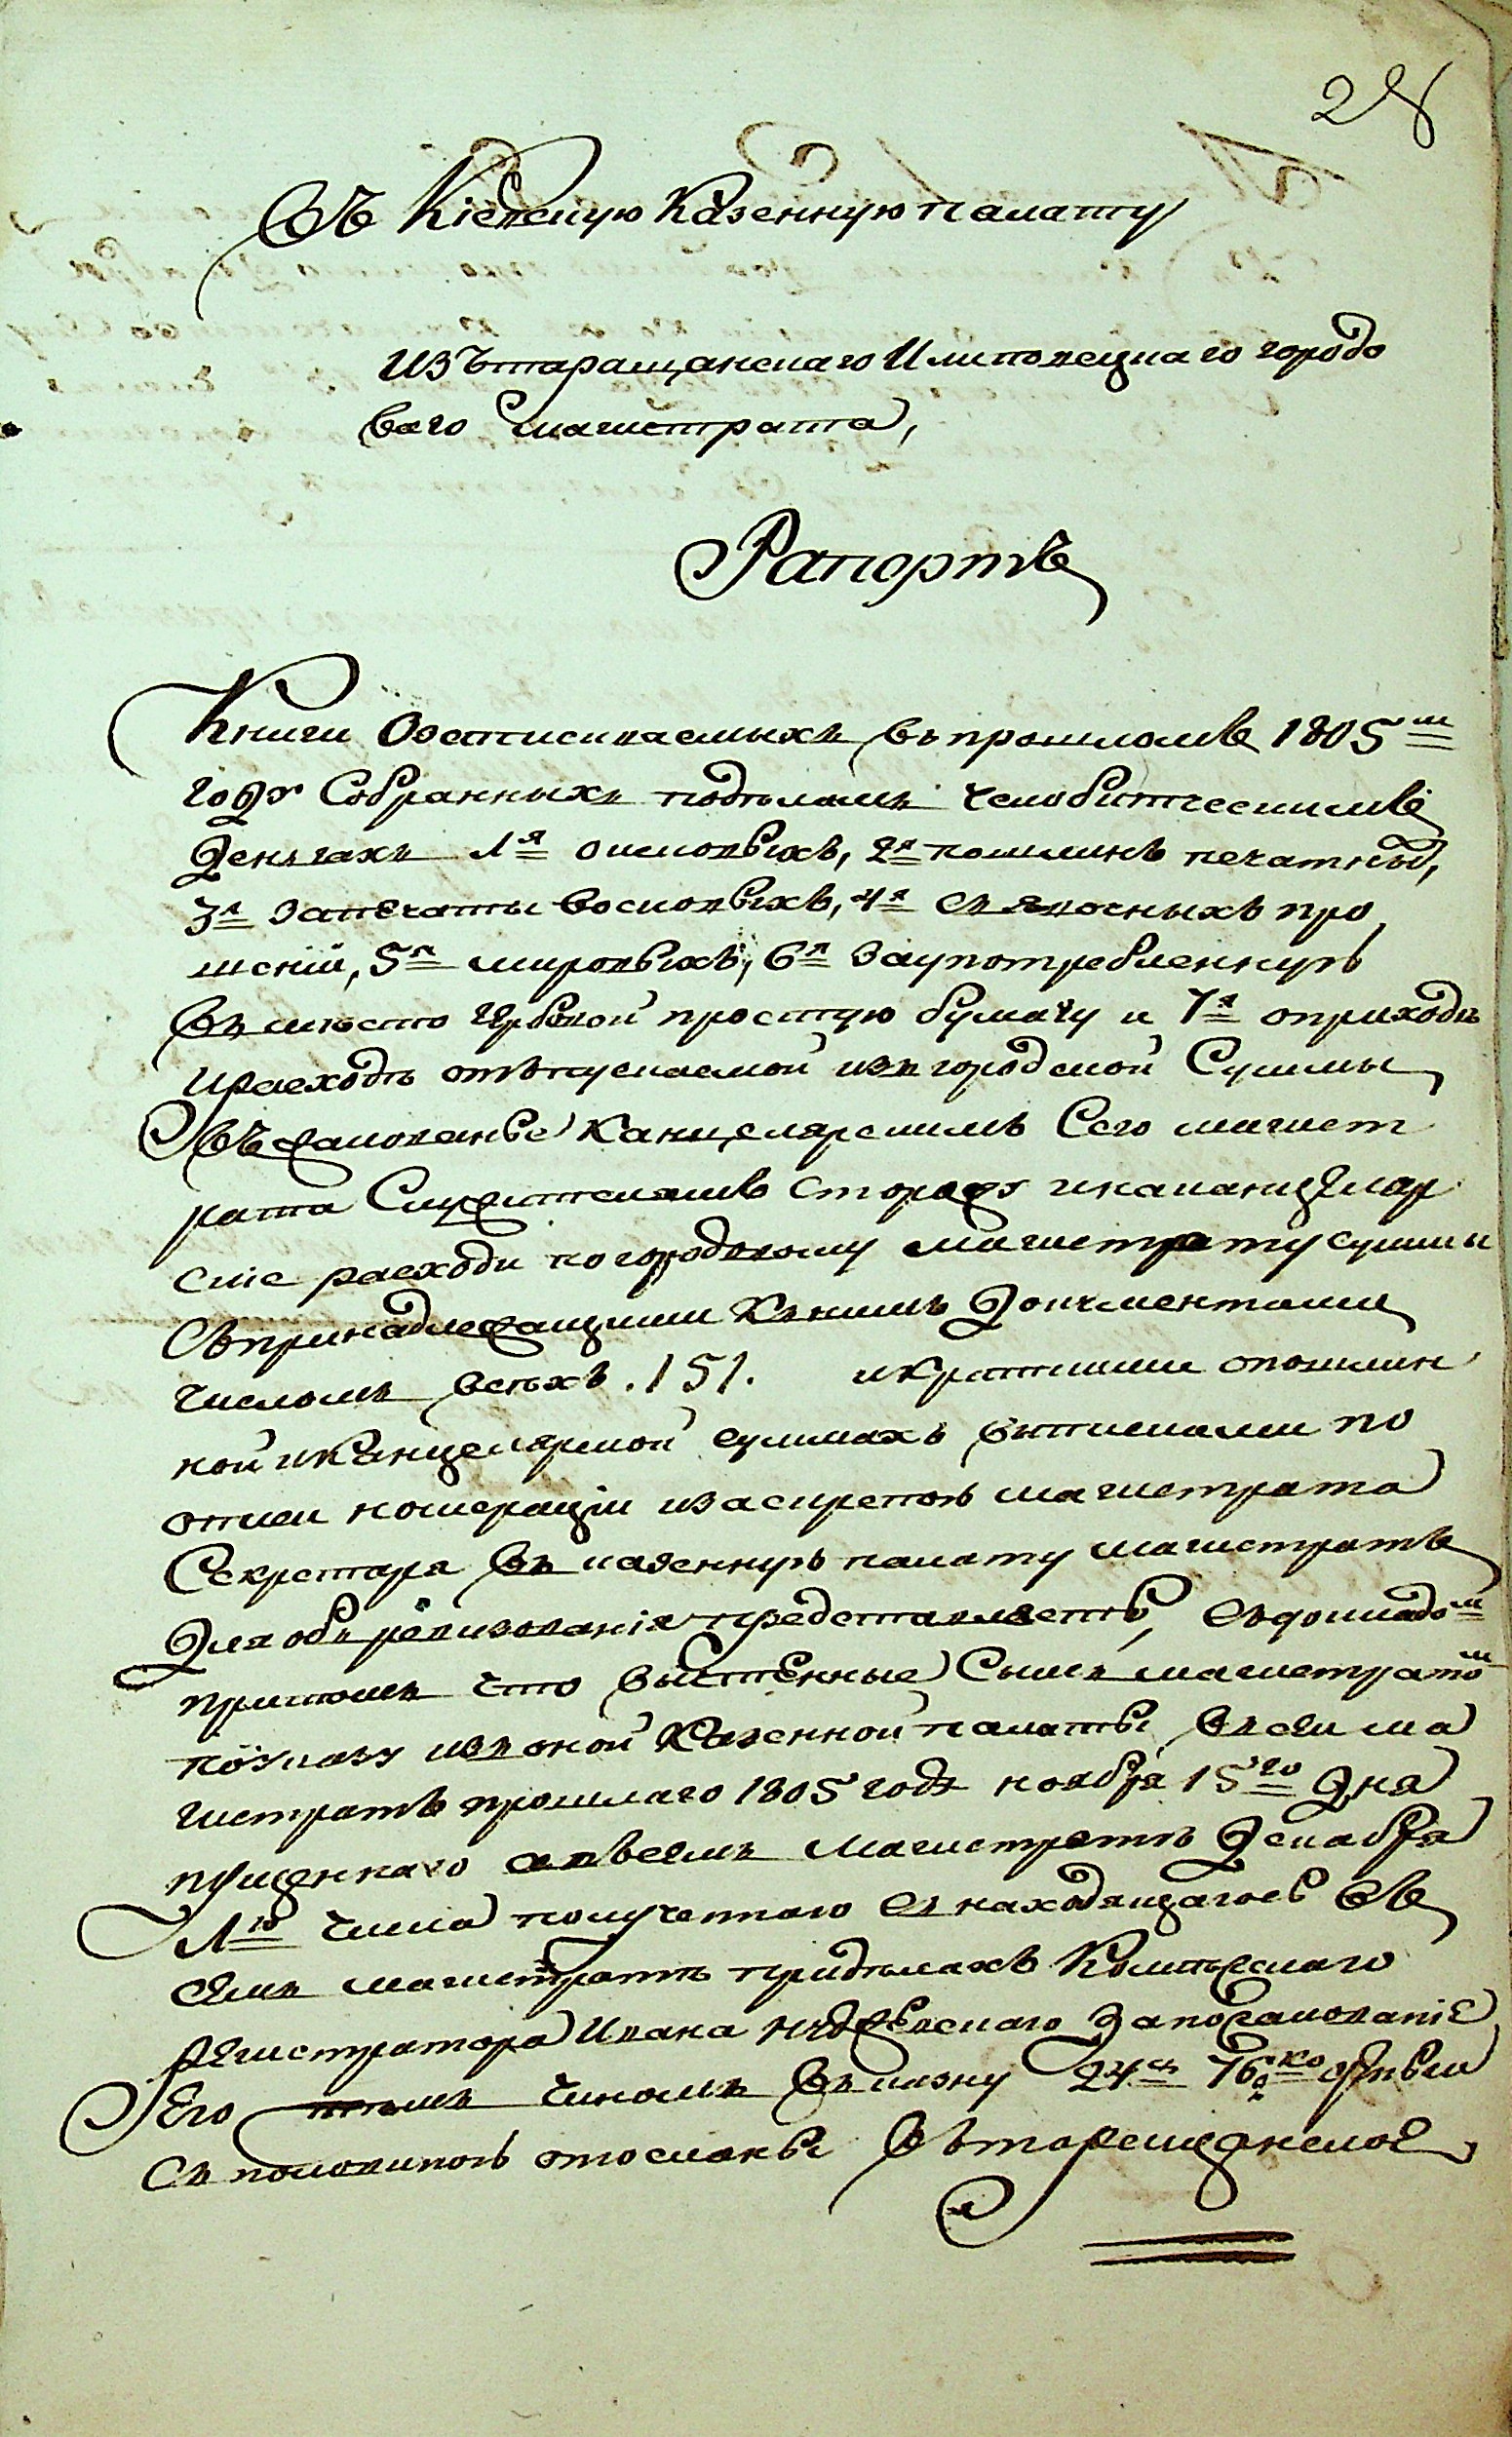 28
Въ Кіевскую Казенную палату
Изъ таращанскаго И липовецкаго городо
ваго магистрата,
Рапортъ
Книги О взыскиваемыхъ въ прошломъ 1805м
году Собранныхъ подъламъ челобитческимъ
Деньгахъ 1я о исковыхъ, 2я пошлинъ печатныхъ,
3я за печаты восковыхъ, 4я съ явочныхъ про
шеній, 5я мировыхъ, 6я За употребленную
въ место гербовой простую бумагу и 7я о приходъ
и расходъ отъпускаемой изъ городской Суммы
Въ жалованье канцелярскимъ Сего магист
рата Служителямъ сторожу и на канцеляр
скіе расходи по городовому магистрату суммы
Съ принадлежащими Къ нимъ Документами
числомъ всехъ .151. и краткими о пошлин
ной и Канцелярской суммахъ выписками по
описи номерации и за скрепою магистрата
Секретаря въ казенную палату магистратъ
Для объ ревизованія представляетъ, съ докладом
притомъ что вычтенные Симъ магистратом
по указу изъ оной Казенной палаты въ сей ма
гистратъ прошлаго 1805 года ноября 15го Дня
пущеннаго а въ семъ Магистратъ Декабря
1го числа полученного съ находящагося въ
семъ магистратъ придълахъ Колежскаго
регистратора Ивана За пожалованіе
Его темъ чиномъ въ казну 24р 76 ко
съ половиною отосланы Въ таращанское